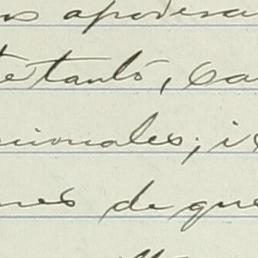 os apodera
te tanto, ca
cionales; i
nes de que